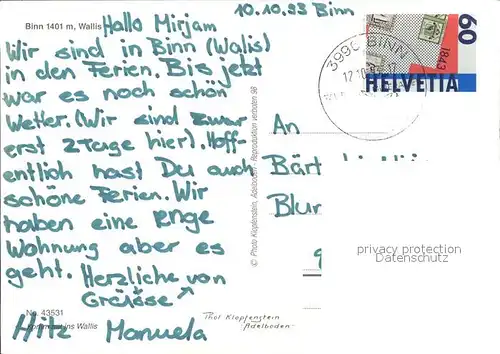 Binn 1401 m, Wallis
Hallo Mirjam
10.10.93 Binn
Wir sind in Binn (Walis)
in den Ferien. Bis jetzt
war es noch schön
Wetter. (Wir sind zwar
erst 2 Tage hier). Hoff-
entlich hast Du auch
schöne Ferien. Wir
haben eine enge
Wohnung aber es
geht. Herzliche von
Grüsse
No. 43531
Hitz Manuela
ins Wallis
© Photo Klopfenstein, Adelboden - Reproduktion verboten 98
Thol Klopfenstein
Adelboden
3996 BINN
60
1843
HELVETIA
An
Bärt
Blur
privacy protection
Datenschutz